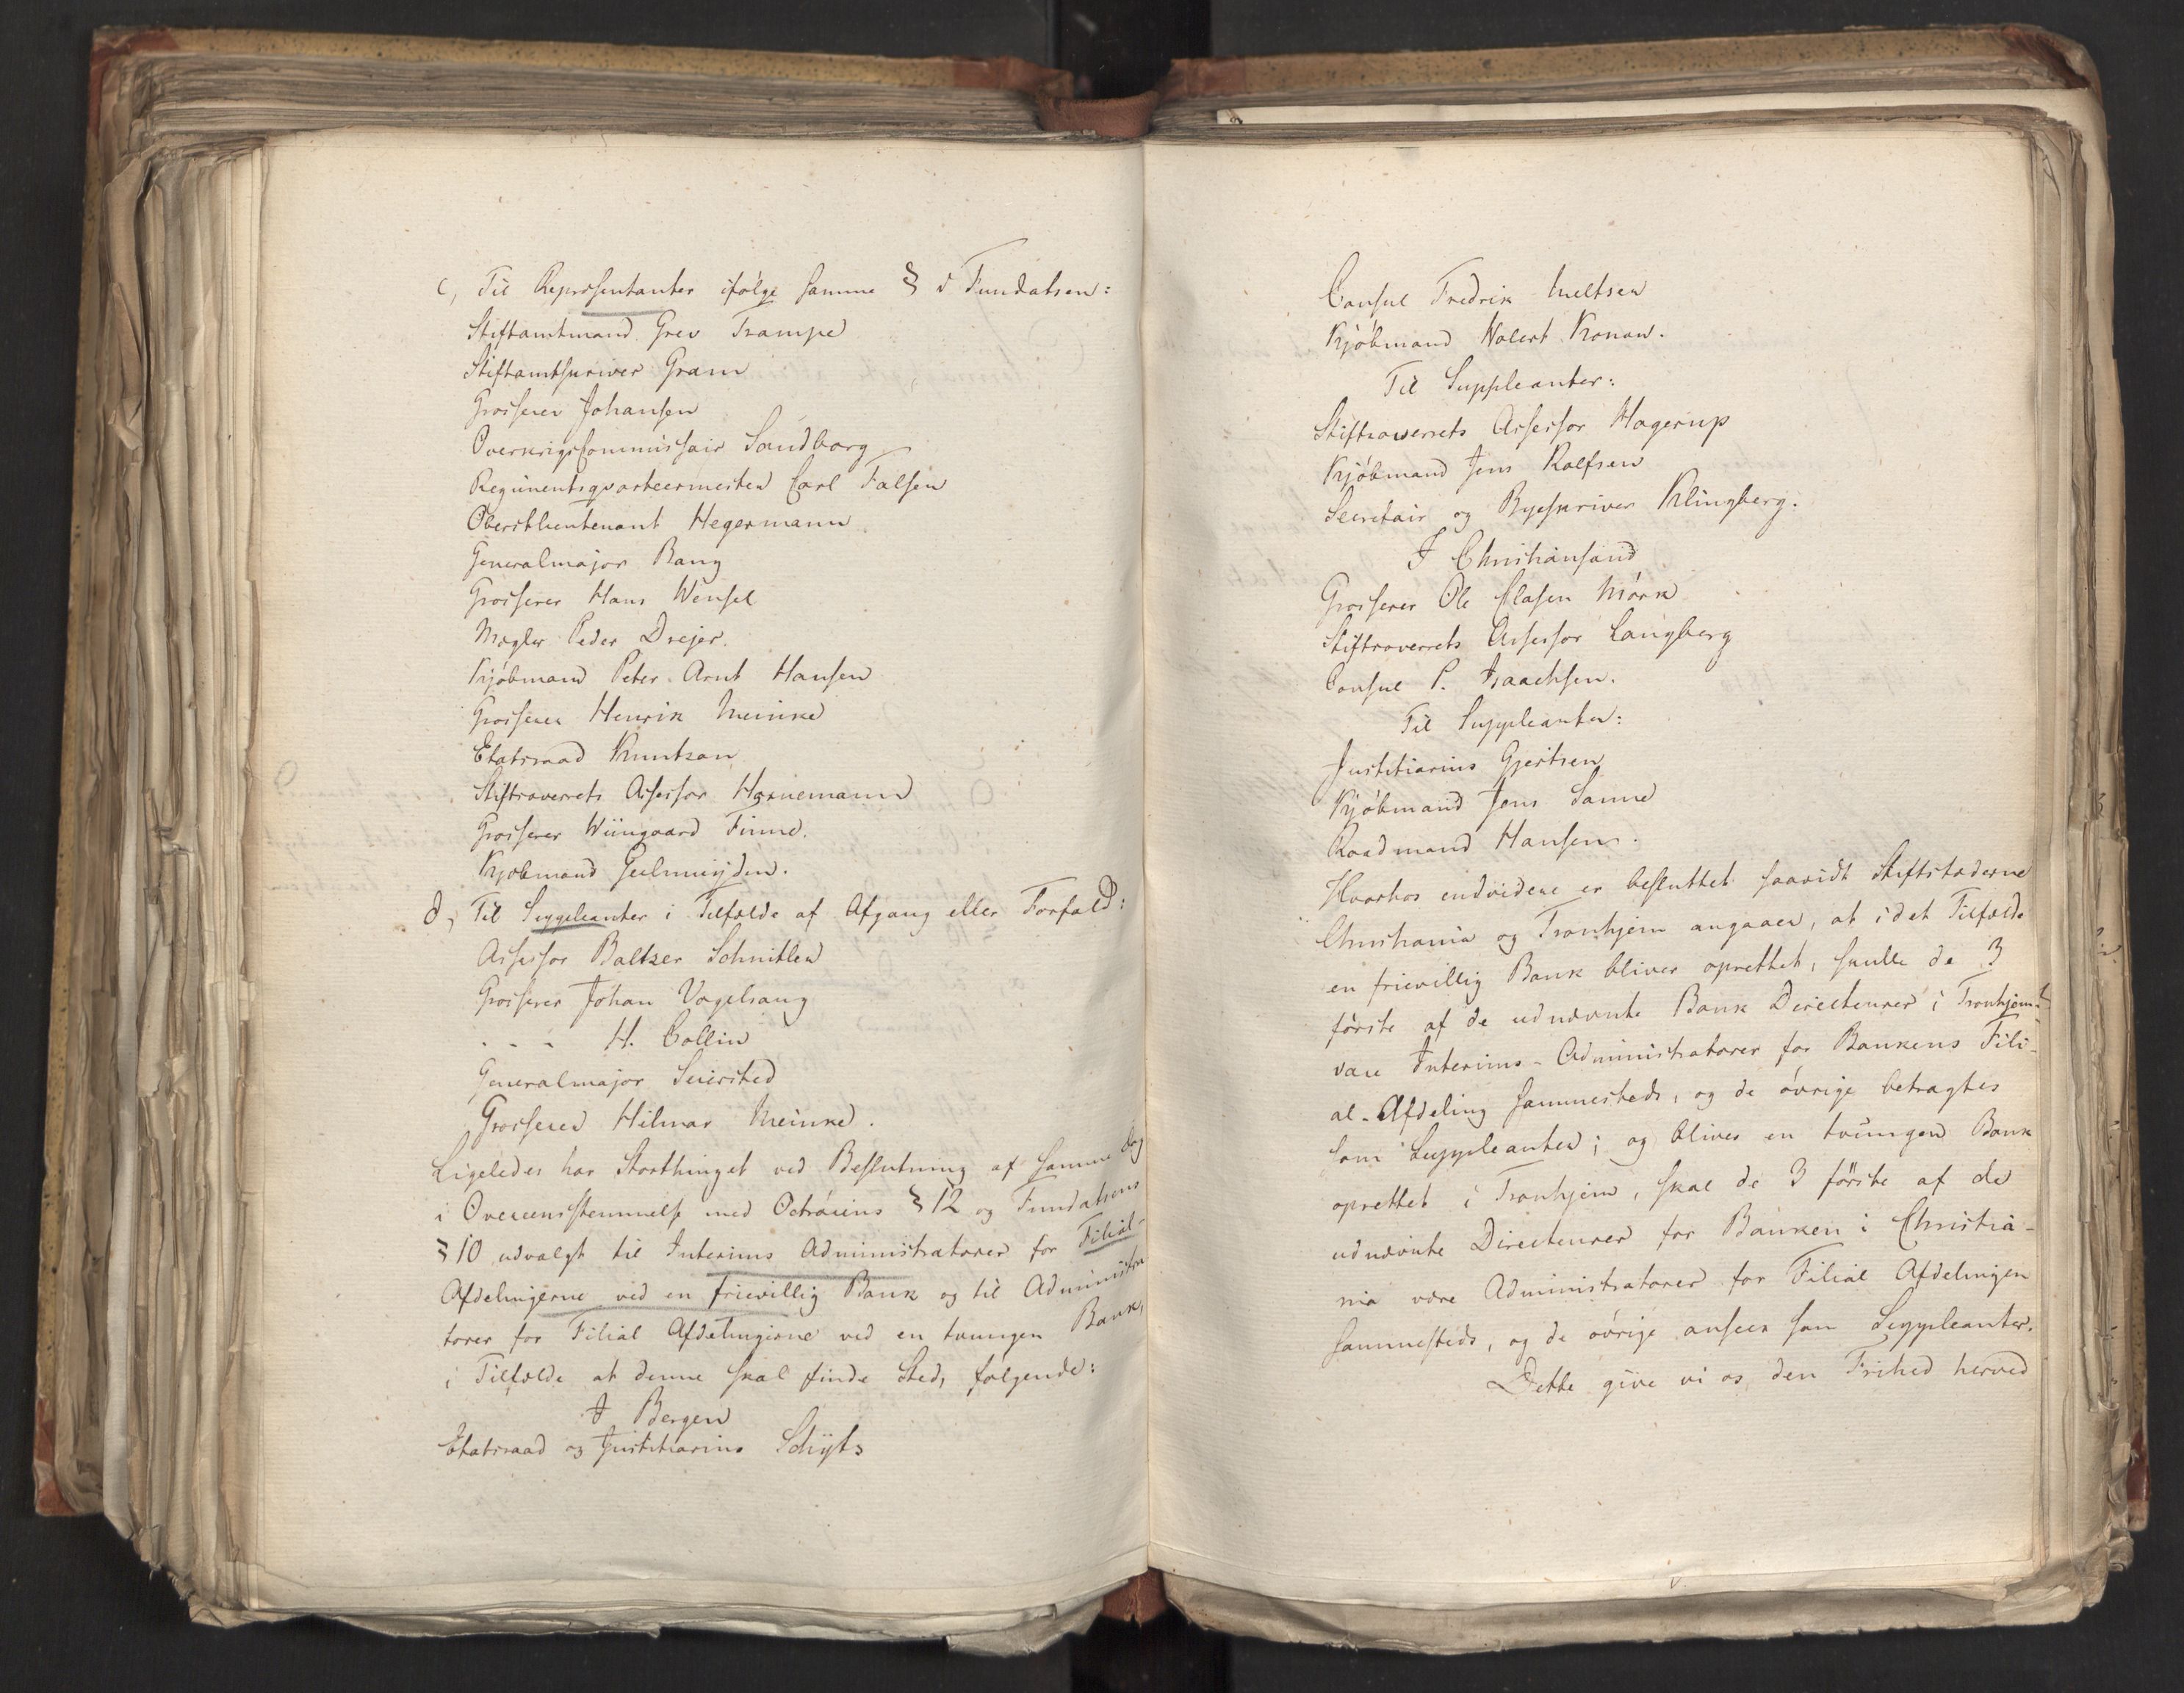 c, Til Repræsentanter ifølge samme § i Fundatsen:
Stiftamtmand Grev Trampe
Stiftamtskriver Gram
Grosserer Johansen
Overkrigscommissair Sandborg
Regimentsqvarteermester Carl Falsen
Oberstlieutenant Hegermann
Generalmajor Bang
Grosserer Hans Wensel
Mægler Peder Drejer.
Kjøbmand Peter Arnt Hansen
Grosserer Henrik Meinke
Etatsraad Knutzon
Stiftsoverrets Assessor Hornemann
Grosserer Wiingaard Finne.
Kjøbmand Gulmeyden.
d, Til Suppleanter i Tilfælde af Afgang eller Forfald:
Assessor Baltzer Schnitler
Grosserer Johan Vogelsang
- - - H. Collin
Generalmajor Seiersted
Grosserer Hilmar Meinke.
Ligeledes har Storthinget ved Beslutning af samme Dag
i Overeensstemmelse med Octroiens § 12 og Fundatsens
§ 10 udvalgt til Interims Administratorer for Filial-
Afdelingerne ved en frievillig Bank og til Administra
torer for Filial Afdelingerne ved en tvungen Bank,
i Tilfælde at denne skal finde Sted, følgende:
I Bergen
Etatsraad og Justitiarius Schytz
Consul Fredrik Meltzer
Kjøbmand Wolert Konow.
Til Suppleanter:
Stiftsoverrets Assessor Hagerup
Kjøbmand Jens Rolfsen
Secretair og Byeskriver Klingberg.
I Christiansand
Grosserer Ole Clasen Mørk
Stiftsoverrets Assessor Langberg
Consul P. Isaachsen.
Til Suppleanter:
Justitiarius Gjertsen
Kjøbmand Jens Sanne
Raadmand Hansen.
Hvorhos endvidere er besluttet saavidt Stiftstæderne
Christiania og Tronhjem angaaer, at i det Tilfælde
en frievillig Bank bliver oprettet, skulle de 3
første af de udnævnte Bank Directeurer i Tronhjem
være Interims-Administratorer for Bankens Fili-
al-Afdeling sammesteds, og de øvrige betragtes
som Suppleanter; og bliver en tvungen Bank
oprettet i Tronhjem, skal de 3 første af de
udnævnte Directeurer for Banken i Christia-
nia være Administratorer for Filial Afdelingen
sammesteds, og de øvrige ansees som Suppleanter.
Dette give vi os den Frihed herved